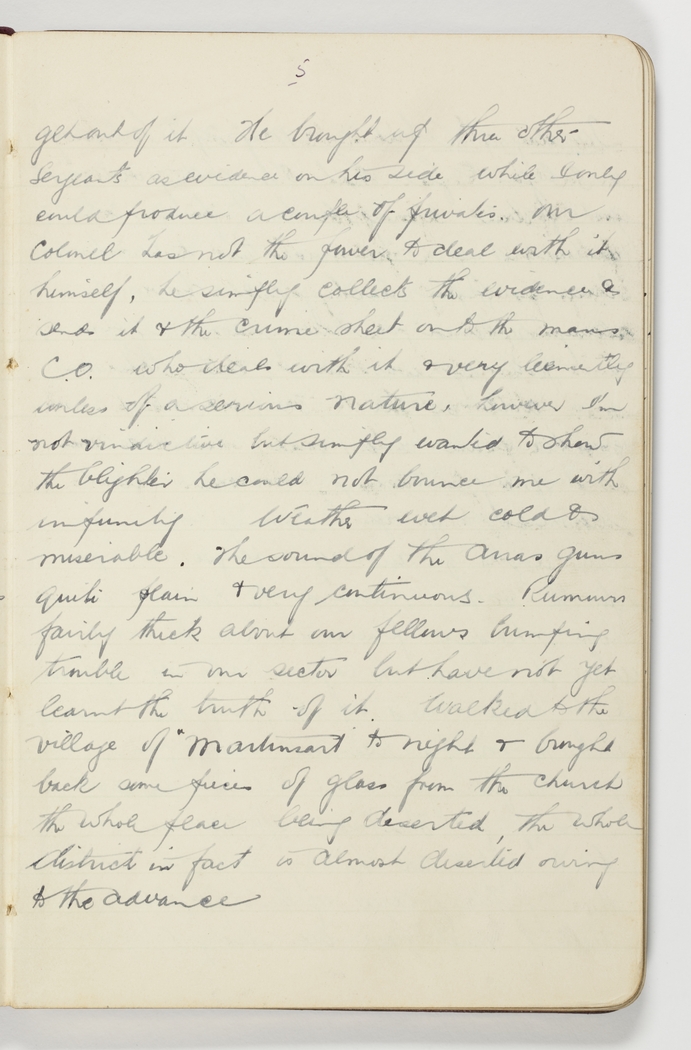 5
get out of it He brought up three other
Sergeants as evidence on his side while I only
could produce a couple of privates. Our
Colonel has not the power to deal with it
himself, he simply collects the evidence &
sends it & the crime sheet onto the mans
C.O. who deals with it & very leniently
unless of a serious nature, however I'm
not vindictive but simply wanted to show
the blighter he could not bounce me with
impunity Weather wet cold &
miserable. The sound of the Arras guns
quite plain & very continuous. Rumours
fairly thick about our fellows bumping
trouble in our sector but have not yet
learnt the truth of it. Walked to the
village of "Martinsart" to night & brought
back some pieces of glass from the church
the whole place being deserted, the whole
district in fact is almost deserted owing
to the advance